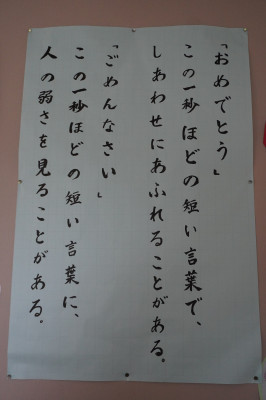 「おめでとう」
この一秒ほどの短い言葉で、
しあわせにあふれることがある。
「ごめんなさい」
この一秒ほどの短い言葉に、
人の弱さを見ることがある。